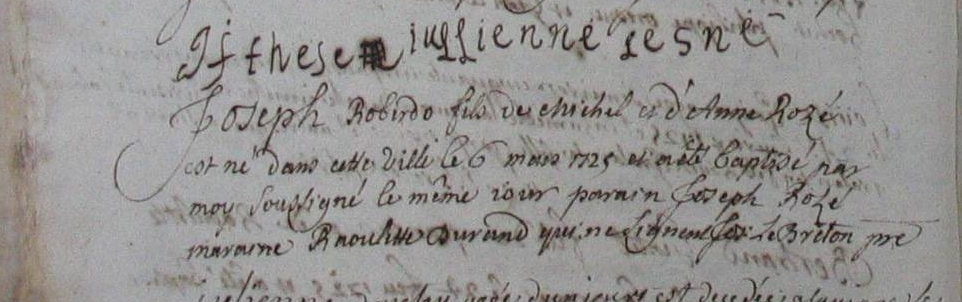 iullienne lesné
Joseph Robirdo fils de Michel et d'Anne Rozé
est né dans cette ville le 6 mars 1725 et a été baptisé par
moy soussigné le même iour parain Joseph Rozé
maraine Raoulette Durand qui ne signent Le Breton pre